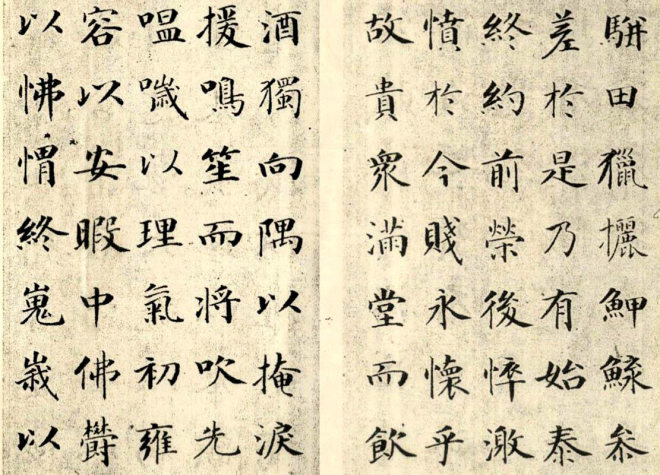 駢田獵攦魻鰈参
差於是乃有始泰
終約前榮後悴激
憤於今賤永懷乎
故貴衆滿堂而飲
酒獨向隅以掩淚
援鳴笙而将吹先
嗢噦以理氣初雍
容以安暇中佛欝
以怫愲終嵬峩以